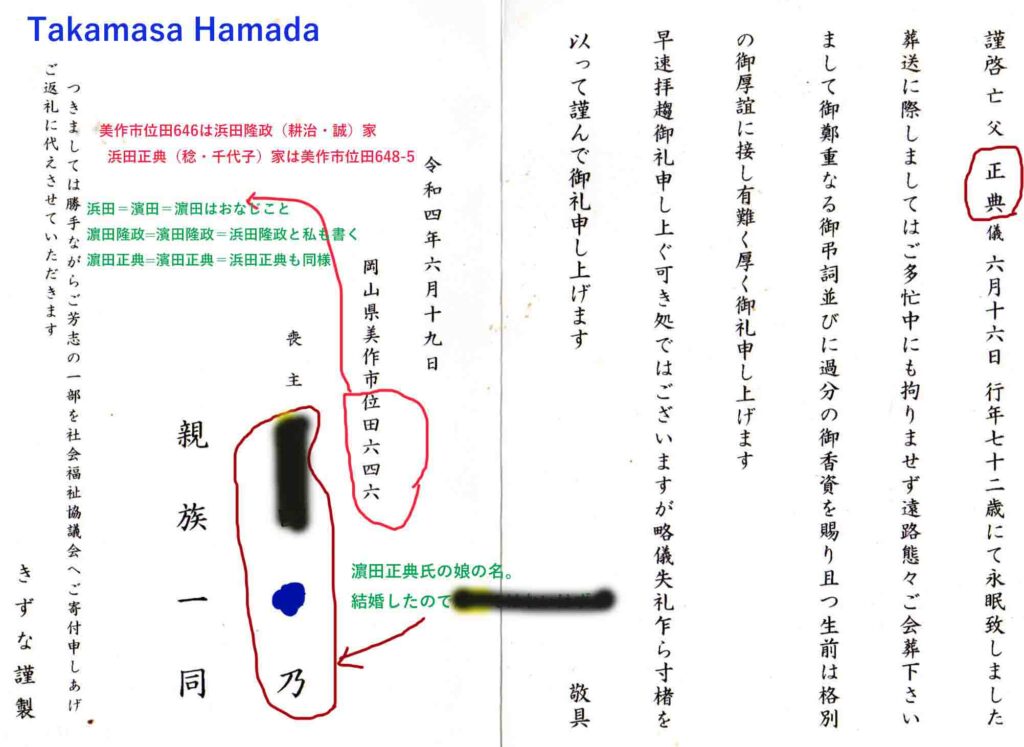 Takamasa Hamada
謹啓 亡父 正典 儀 六月十六日 行年七十二歳にて永眠致しました
葬送に際しましてはご多忙中にも拘りませず遠路態々ご会葬下さい
まして御鄭重なる御弔詞並びに過分の御香資を賜り且つ生前は格別
の御厚誼に接し有難く厚く御礼申し上げます
早速拝趨御礼申し上ぐ可き処ではございますが略儀失礼乍ら寸楮を
以って謹んで御礼申し上げます
敬具
令和四年六月十九日
岡山県美作市位田六四六
喪主
乃
親族一同
つきましては勝手ながらご芳志の一部を社会福祉協議会へご寄付申しあげ
ご返礼に代えさせていただきます
きずな謹製
美作市位田646は浜田隆政（耕治・誠）家
浜田正典（稔・千代子）家は美作市位田648-5
浜田＝濱田＝濵田はおなじこと
濵田隆政=濱田隆政＝浜田隆政と私も書く
濵田正典=濱田正典＝浜田正典も同様
濵田正典氏の娘の名。
結婚したので